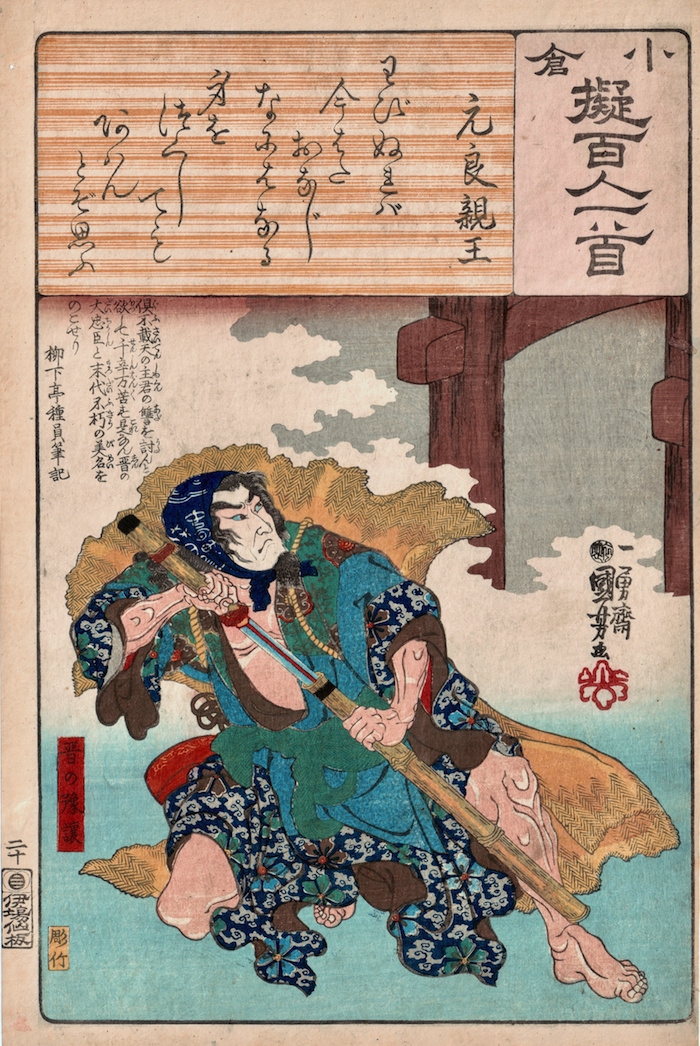 小倉
擬百人一首
元良親王
わびぬれバ
今はた
おなじ
なにはなる
身を
つくしても
あはん
とぞ思ふ
倶不戴天の主君の讐を討んと
欲して千辛万苦す是なん晋の
大忠臣と末代不朽の美名を
のこせり
柳下亭種員筆記
一勇齋
國芳画
晋の豫讓
二十
伊場仙板
彫竹